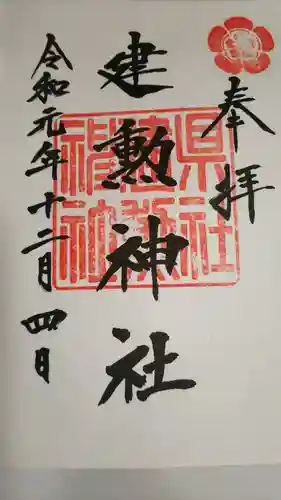 奉拝
建勲神社
令和元年十二月四日